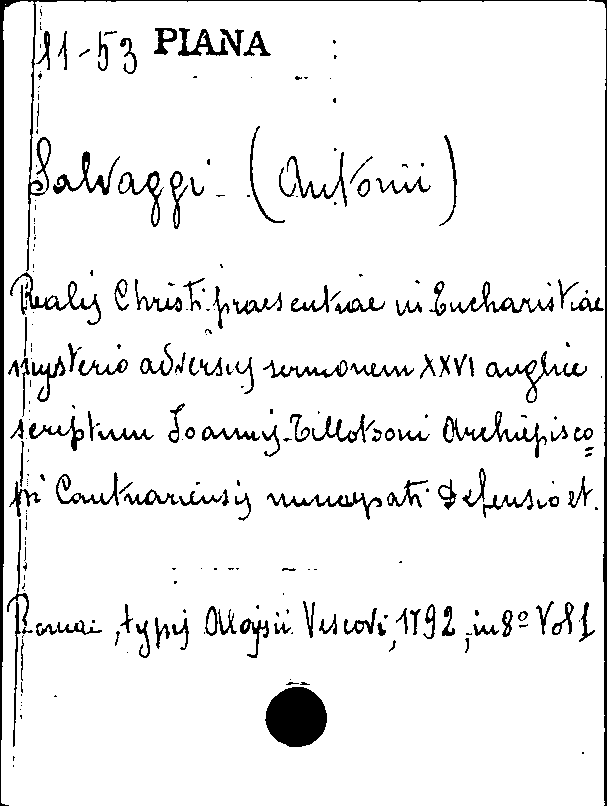 11-53 PIANA
Salvaggi (Antonii)
Realis Christi praesentiae in Eucharistiae
mysterio adversus sermonem XXVI anglice
scriptum Joannis Tillotsoni Archiepisco=
pi Cantuariensis nuncupati Defensio et.
Romae, typis Aloysii Vescovi, 1792, in 8º Vol 1